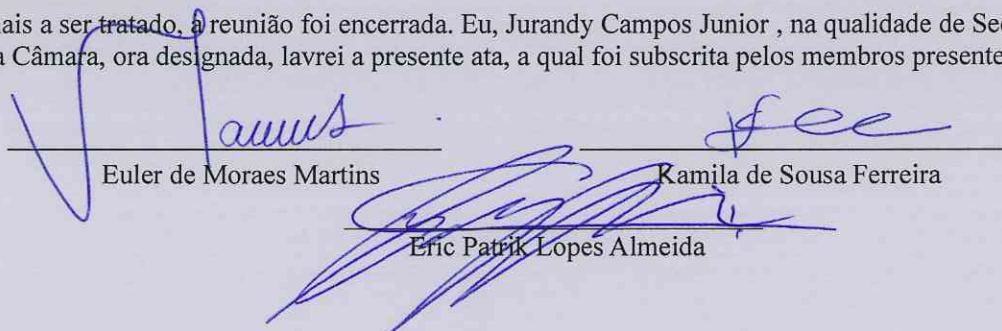 ais a ser tratado, a reunião foi encerrada. Eu, Jurandy Campos Junior , na qualidade de Sec
a Câmara, ora designada, lavrei a presente ata, a qual foi subscrita pelos membros presente
Euler de Moraes Martins
Kamila de Sousa Ferreira
Eric Patrik Lopes Almeida